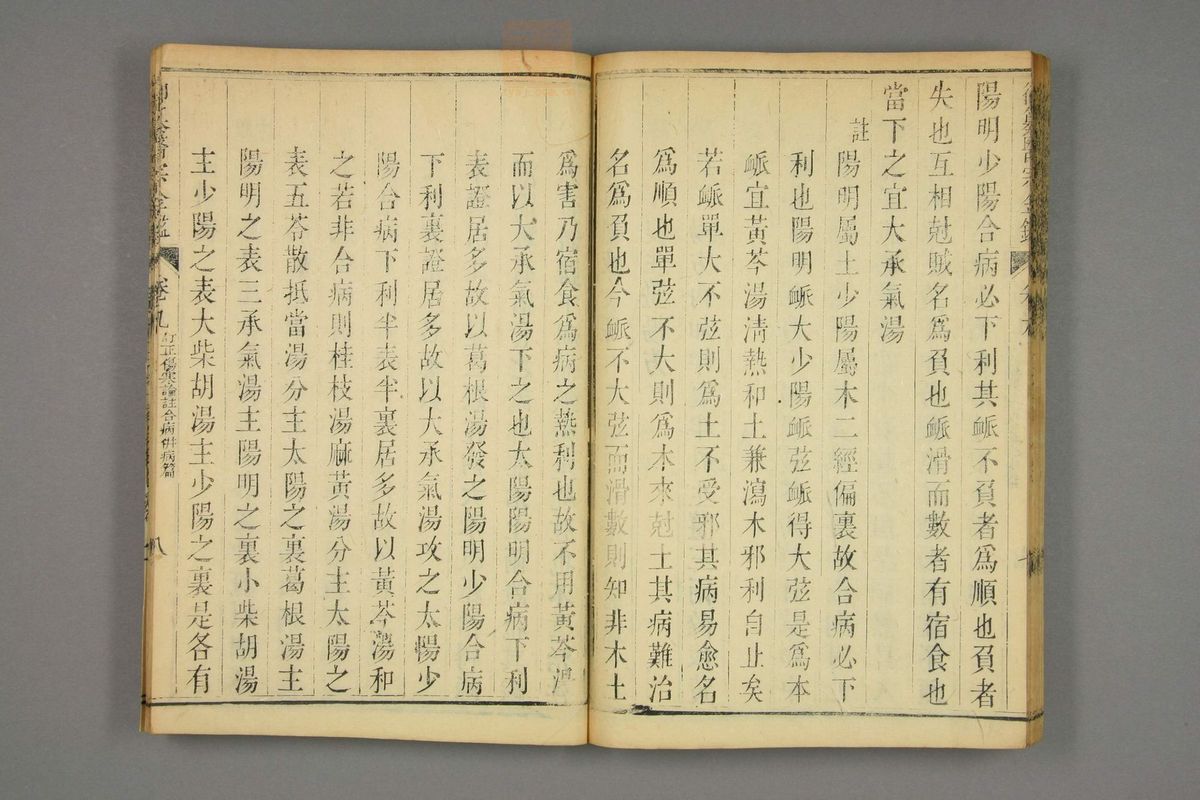 陽明少陽合病必下利其脈不負者爲順也負者
失也互相尅賊名爲負也脈滑而數者有宿食也
當下之宜大承氣湯
註
陽明屬土少陽屬木二經偏裏故合病必下
利也陽明脈大少陽脈弦脈得大弦是爲本
脈宜黃芩湯淸熱和土兼瀉木邪利自止矣
若脈單大不弦則爲土不受邪其病易愈名
爲順也單弦不大則爲木來尅土其病難治
名爲負也今脈不大弦而滑數則知非木土
爲害乃宿食爲病之熱利也故不用黃芩湯
而以大承氣湯下之也太陽陽明合病下利
表證居多故以葛根湯發之陽明少陽合病
下利裏證居多故以大承氣湯攻之太陽少
陽合病下利半表半裏居多故以黃芩湯和
之若非合病則桂枝湯麻黃湯分主太陽之
表五苓散抵當湯分主太陽之裏葛根湯主
陽明之表三承氣湯主陽明之裏小柴胡湯
主少陽之表大柴胡湯主少陽之裏是各有
卷九 訂正傷寒論註合病併病篇 八